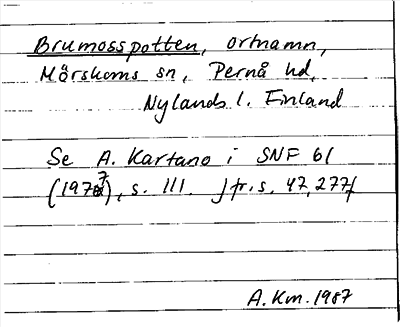 Brumosspotten, ortnamn,
Mörskoms sn, Pernå hd,
Nylands l. Finland
Se A. Kartano i SNF 61
(1977), s. 111. Jfr. s. 47, 277f
A.Km. 1987